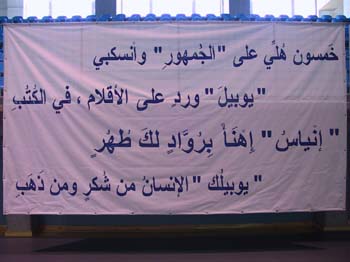 خَمسون هُلّي على "الجُمهورِ" وأنسكبي
"يوبيلَ" وردٍ على الأقلام ، في الكُتُبِ
"إنياسُ" إهنَأ بِرُوَّادٍ لكَ طُهُرٍ
"يوبيلُك" الإنسانُ من شُكرٍ ومن ذَهَبِ